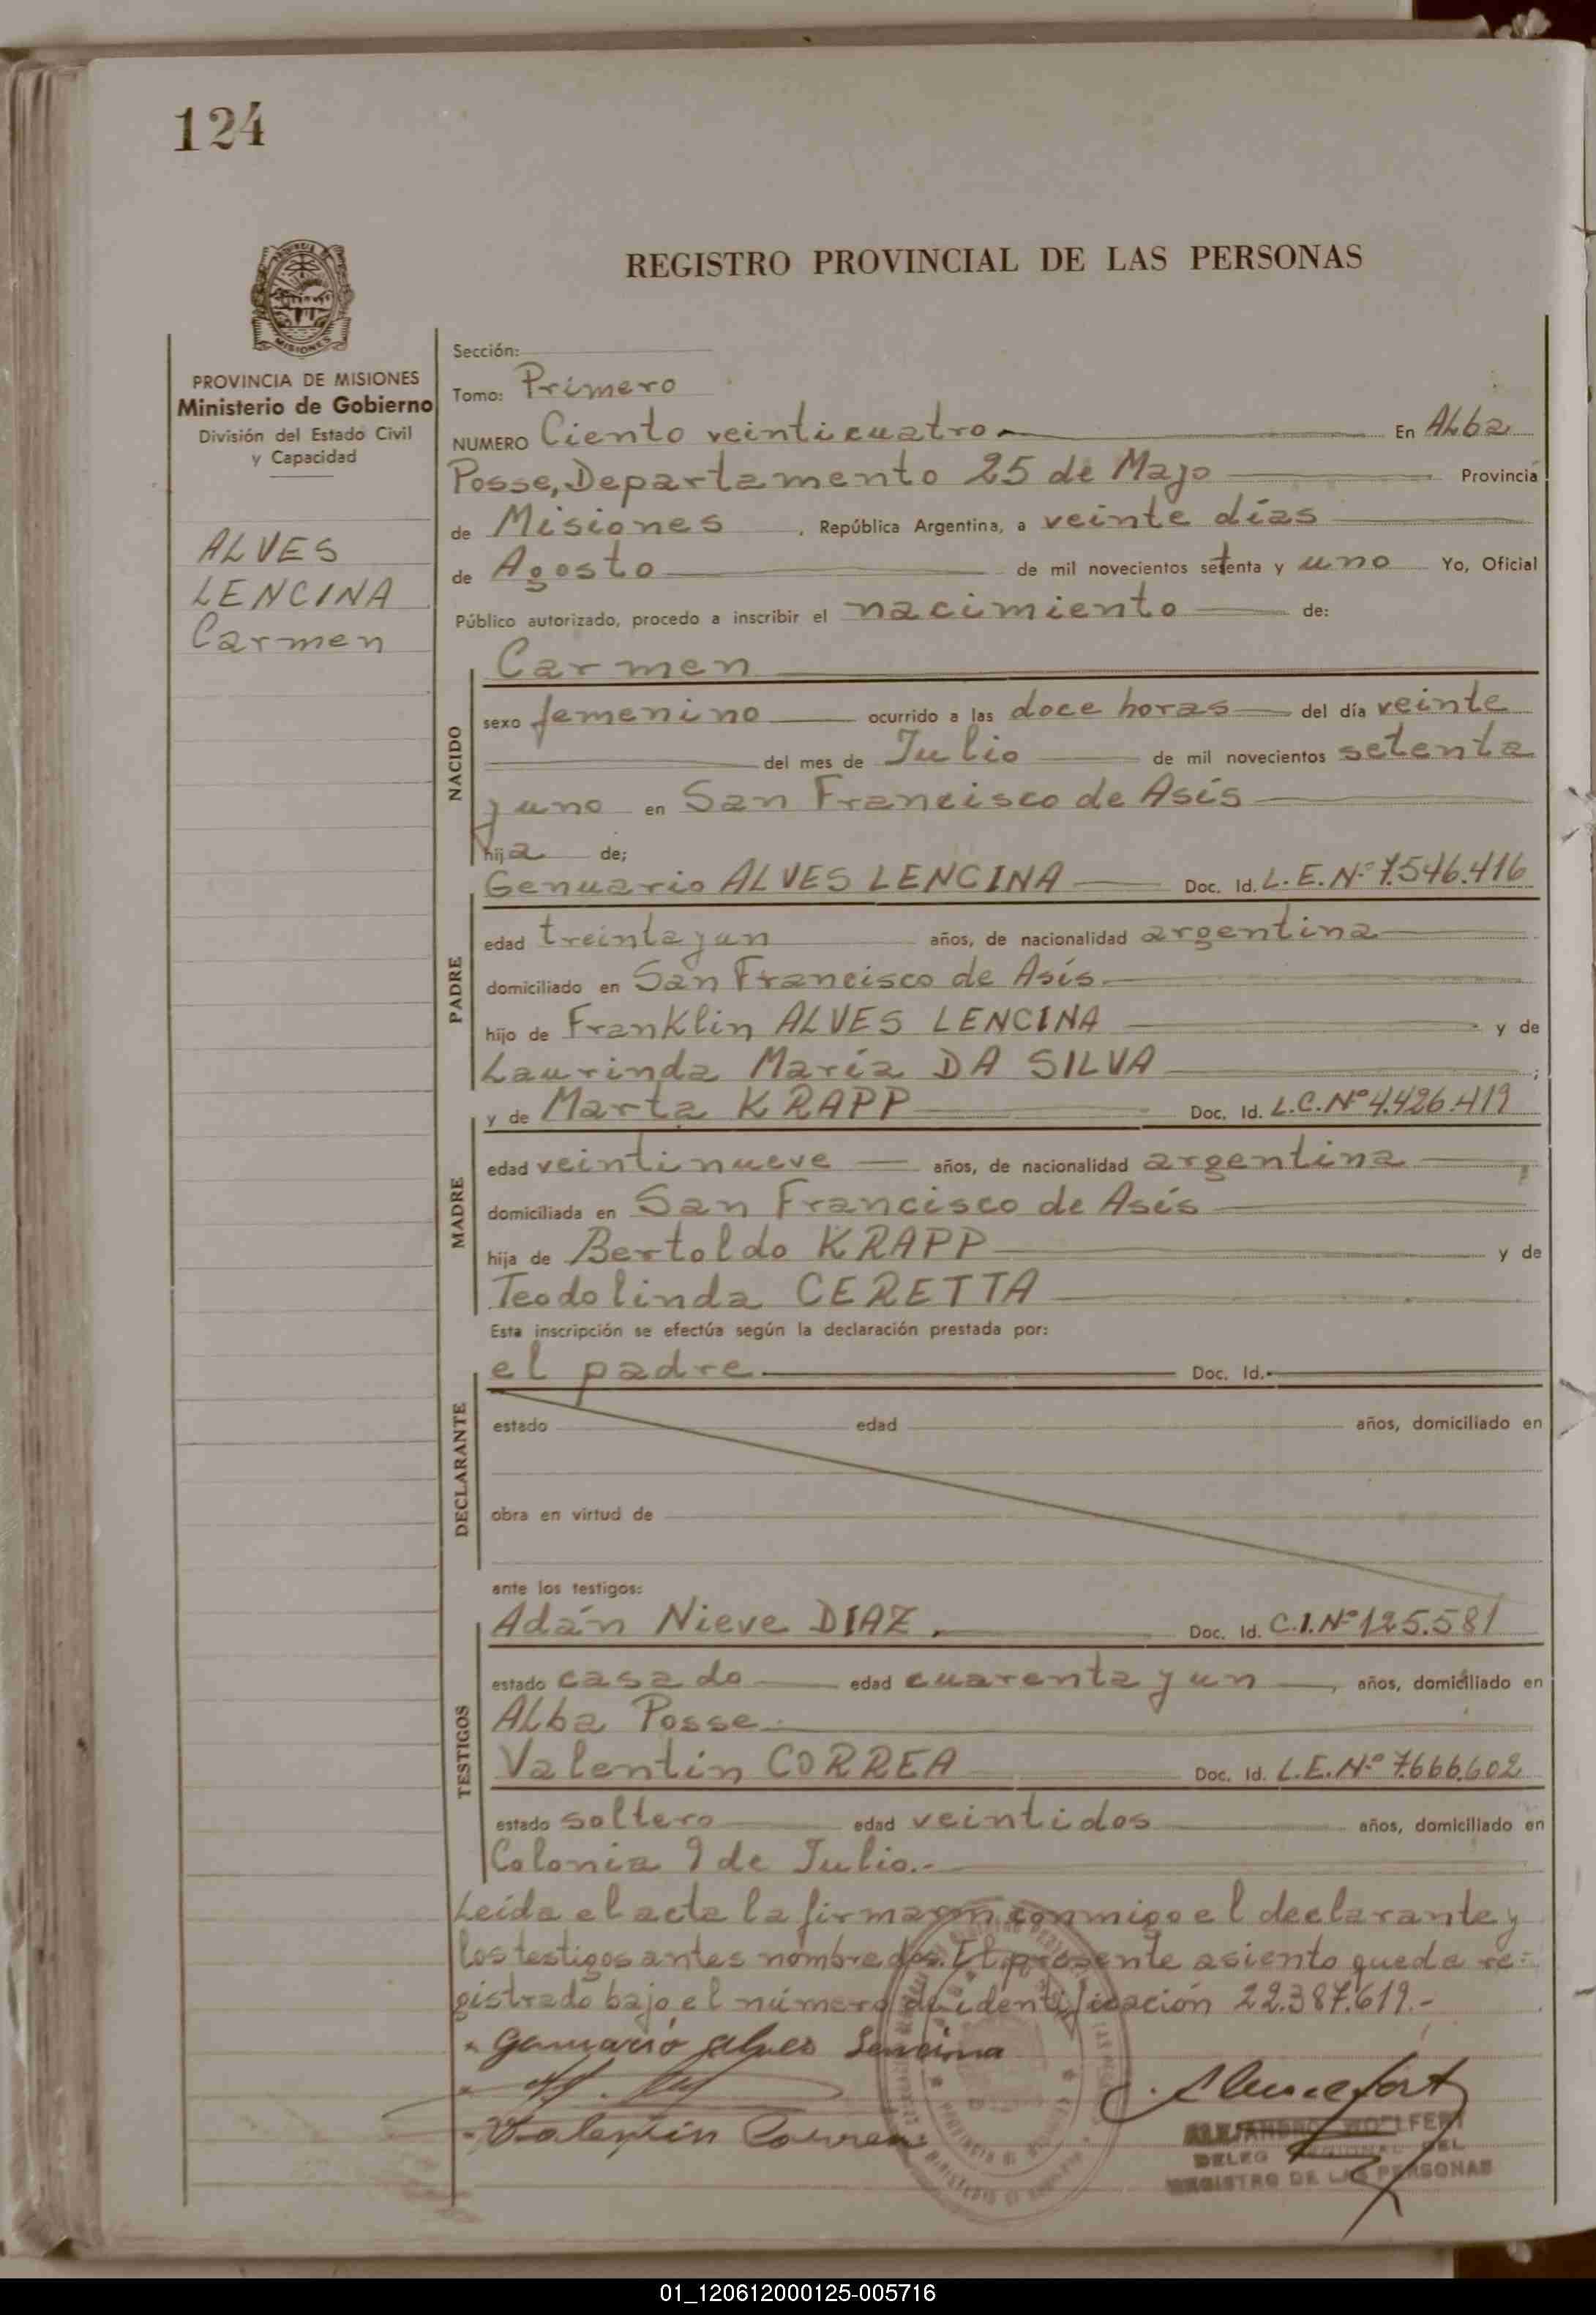 124
REGISTRO PROVINCIAL DE LAS PERSONAS
MISIONES
PROVINCIA DE MISIONES
Ministerio de Gobierno
División del Estado Civil
y Capacidad
ALVES
LENCINA
Carmen
Sección:
Tomo: Primero
NUMERO Ciento veinticuatro.- En Alba
Posse, Departamento 25 de Mayo Provincia
de Misiones, República Argentina, a veinte días
de Agosto de mil novecientos setenta y uno Yo, Oficial
Público autorizado, procedo a inscribir el nacimiento de:
Carmen
NACIDO
sexo femenino ocurrido a las doce horas del día veinte
del mes de Julio de mil novecientos setenta
y uno en San Francisco de Asís
hija de;
PADRE
Genuario ALVES LENCINA Doc. Id. L.E.Nº 7.546.416
edad treinta y un años, de nacionalidad argentina
domiciliado en San Francisco de Asís
hijo de Franklin ALVES LENCINA y de
Laurinda María DA SILVA ;
MADRE
y de Marta KRAPP Doc. Id. L.C.Nº 4.426.419
edad veintinueve años, de nacionalidad argentina ,
domiciliada en San Francisco de Asís
hija de Bertoldo KRAPP y de
Teodolinda CERETTA
Esta inscripción se efectúa según la declaración prestada por:
DECLARANTE
el padre Doc. Id.
estado edad años, domiciliado en
obra en virtud de
ante los testigos:
TESTIGOS
Adán Nieve DIAZ. Doc. Id. C.I.Nº 125.581
estado casado edad cuarenta y un , años, domiciliado en
Alba Posse.
Valentín CORREA Doc. Id. L.E.Nº 7.666.602
estado soltero edad veintidos años, domiciliado en
Colonia 9 de Julio.-
Leída el acta la firman conmigo el declarante y
los testigos antes nombrados. El presente asiento queda re-
gistrado bajo el número de identificación 22.387.619.-
Genuario Alves Lencina
Valentin Correa
ALEJANDRO WOELFERT
DELEG REGIONAL DEL
REGISTRO DE LAS PERSONAS
01_120612000125-005716